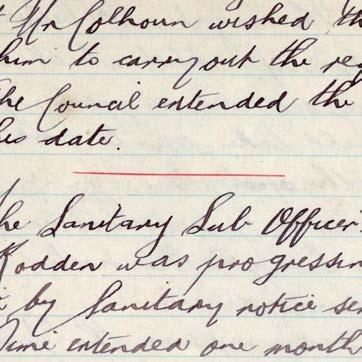 Mr Colhoun wished
him to carry out the
The Council extended the
his date.
The Sanitary Sub Officer
Rodden was
by Sanitary notice
Time extended one month